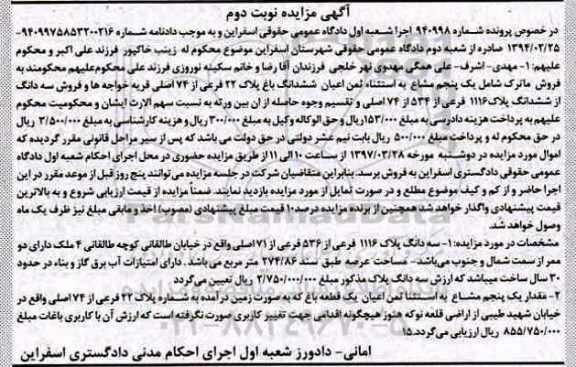 آگهی مزایده نوبت دوم
در خصوص پرونده شماره ۹۴۰۹۹۸ اجرا شعبه اول دادگاه عمومی حقوقی اسفراین و به موجب دادنامه شماره ۹۴۰۹۹۷۵۸۵۳۲۰۰۲۱۶-
۱۳۹۴/۰۳/۲۵ صادره از شعبه دوم دادگاه عمومی حقوقی شهرستان اسفراین موضوع محکوم له زینب خاکپور فرزند علی اکبر و محکوم
علیهم: ۱- مهدی- اشرف- علی همگی مهدوی نهر خلجی فرزندان آقا رضا و خانم سکینه نوروزی فرزند علی محکوم علیهم محکومند به
فروش ماترک شامل یک پنجم مشاع به استثناء ثمن اعیان ششدانگ باغ پلاک ۲۲ فرعی از ۷۴ اصلی قریه خواجه ها و فروش سه دانگ
از ششدانگ پلاک ۱۱۱۶ فرعی از ۵۳۴ از ۷۴ اصلی و تقسیم وجوه حاصله از آن بین ورثه به نسبت سهم الارث ایشان و محکومیت محکوم
علیهم به پرداخت هزینه دادرسی به مبلغ ۱۵۳/۰۰۰ ریال و حق الوکاله وکیل به مبلغ ۳۰۰/۰۰۰ ریال و هزینه کارشناسی به مبلغ ۳/۵۰۰/۰۰۰ ریال
در حق محکوم له و پرداخت مبلغ ۵۰۰/۰۰۰ ریال بابت نیم عشر دولتی در حق دولت می باشد که پس از سیر مراحل قانونی مقرر گردیده که
اموال مورد مزایده در دوشنبه مورخه ۱۳۹۷/۰۳/۲۸ از ساعت ۱۰ الی ۱۱ از طریق مزایده حضوری در محل اجرای احکام شعبه اول دادگاه
عمومی حقوقی دادگستری اسفراین به فروش برسد. بنابراین متقاضیان شرکت در جلسه مزایده می توانند پنج روز قبل از موعد مقرر در این
اجرا حاضر و از کم و کیف موضوع مطلع و در صورت تمایل از مورد مزایده بازدید نمایند. ضمناً مزایده از قیمت ارزیابی شروع و به بالاترین
قیمت پیشنهادی واگذار خواهد شد همچنین از برنده مزایده درصد ۱۰ قیمت مبلغ پیشنهادی (مصوب) اخذ و مابقی مبلغ نیز ظرف یک ماه
وصول خواهد شد.
مشخصات در مورد مزایده: ۱- سه دانگ پلاک ۱۱۱۶ فرعی از ۵۳۶ فرعی از ۷۱ اصلی واقع در خیابان طالقانی کوچه طالقانی ۴ ملک دارای دو
ممر از سمت شمال و جنوب می باشد- مساحت عرصه طبق سند ۲۷۴/۸۶ متر مربع می باشد. دارای امتیازات آب برق گاز و بناء در حدود
۳۰ سال ساخت میباشد که ارزش سه دانگ پلاک مذکور مبلغ ۲/۷۵۰/۰۰۰/۰۰۰ ریال تعیین می گردد
۲- مقدار یک پنجم مشاع به استثنا ثمن اعیان یک قطعه باغ که به صورت زمین در آمده به شماره پلاک ۲۲ فرعی از ۷۴ اصلی واقع در
خیابان شهید طیبی از اراضی قلعه نو که هنوز هیچگونه اقدامی جهت تغییر کاربری صورت نگرفته است که ارزش آن با کاربری باغات مبلغ
۸۵۵/۷۵۰/۰۰۰ ریال ارزیابی می گردد.۱۵
امانی- دادورز شعبه اول اجرای احکام مدنی دادگستری اسفراین